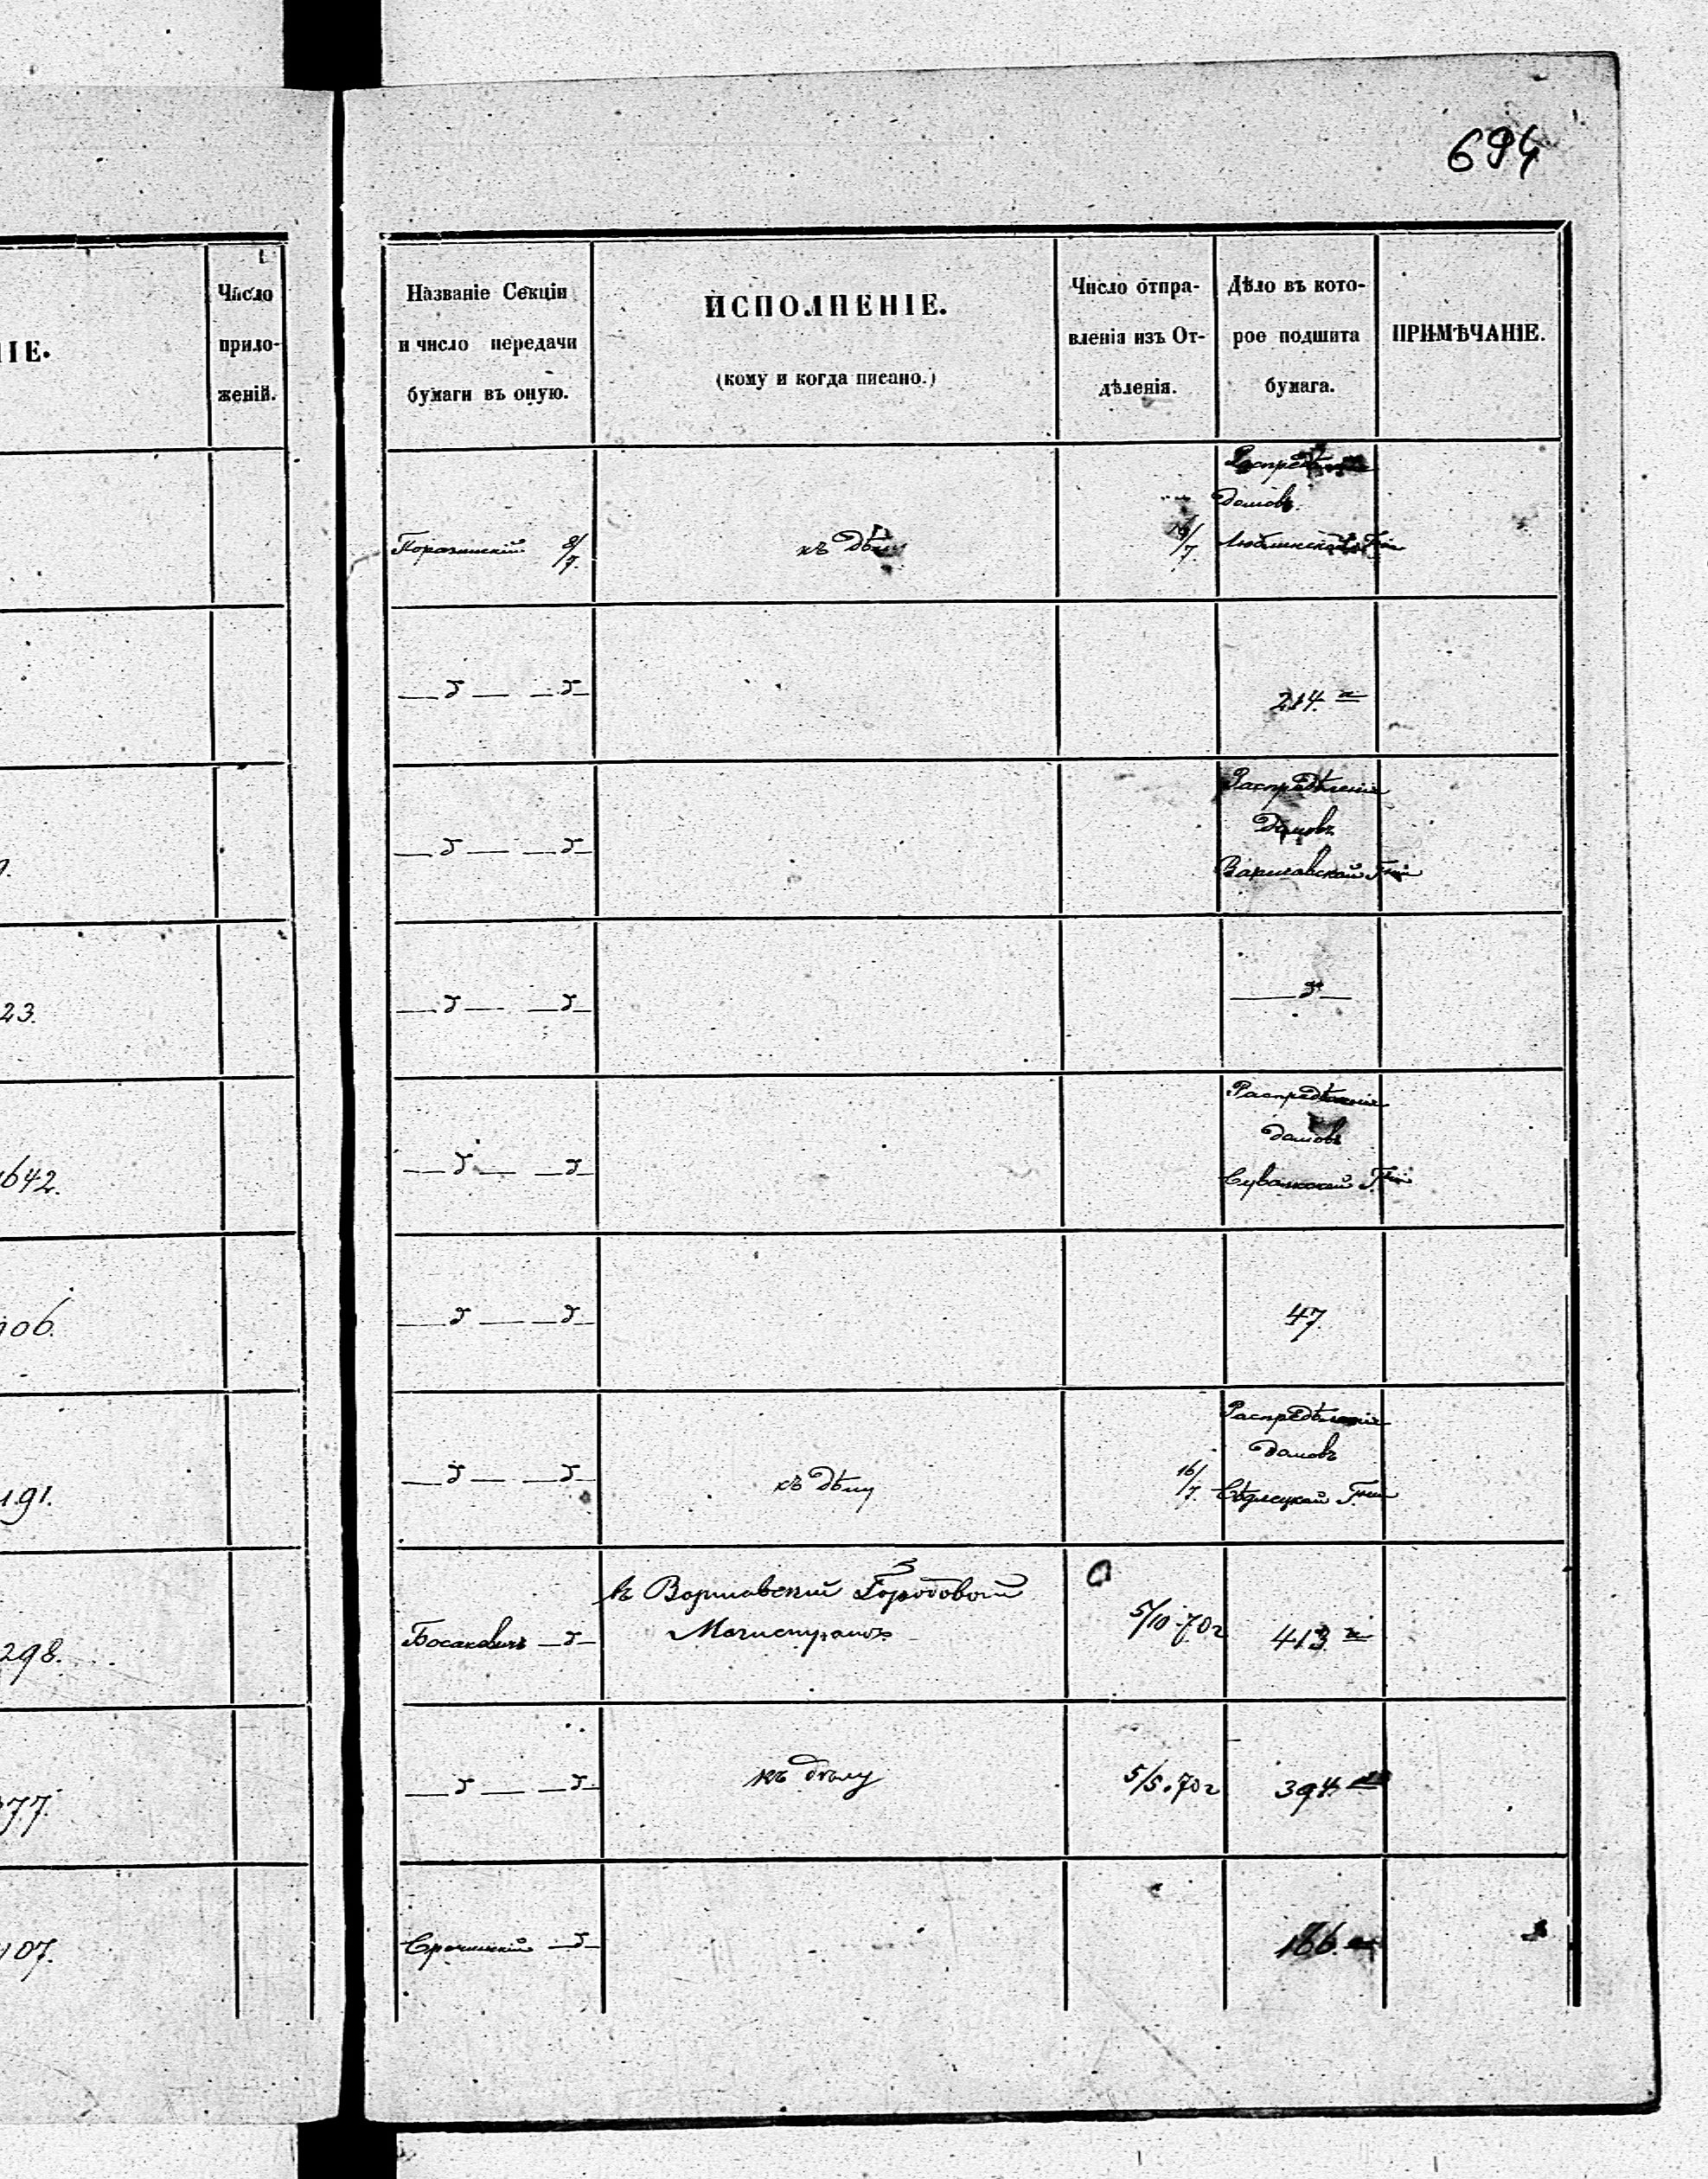 694
ІЕ.
Число
прило-
женій.
Названіе Секціи
и число передачи
бумаги въ оную.
ИСПОЛНЕНІЕ.
(кому и когда писано.)
Число отпра-
вленія изъ От-
дѣленія.
Дѣло въ кото-
рое подшита
бумага.
ПРИМѢЧАНІЕ.
8/7.
къ дѣлу
/7.
Распредѣленіе
домовъ
Люблинской Гніи
— д — — д —
214. а
— д — — д —
Распредѣленіе
домовъ
Варшавской Гніи
23.
— д — — д —
— д —
642.
— д — — д —
Распредѣленіе
домовъ
Сувалкской Гніи
06.
— д — — д —
47.
191.
— д — — д —
къ дѣлу
16/7.
Распредѣленіе
домовъ
Сѣдлецкой Гніи
298.
Босаковичъ — д —
въ Варшавскій Городовой
Магистратъ
5/10 70 г
413 а
77.
— д — — д —
къ дѣлу
5/5. 70 г
394.
107.
— д —
166.